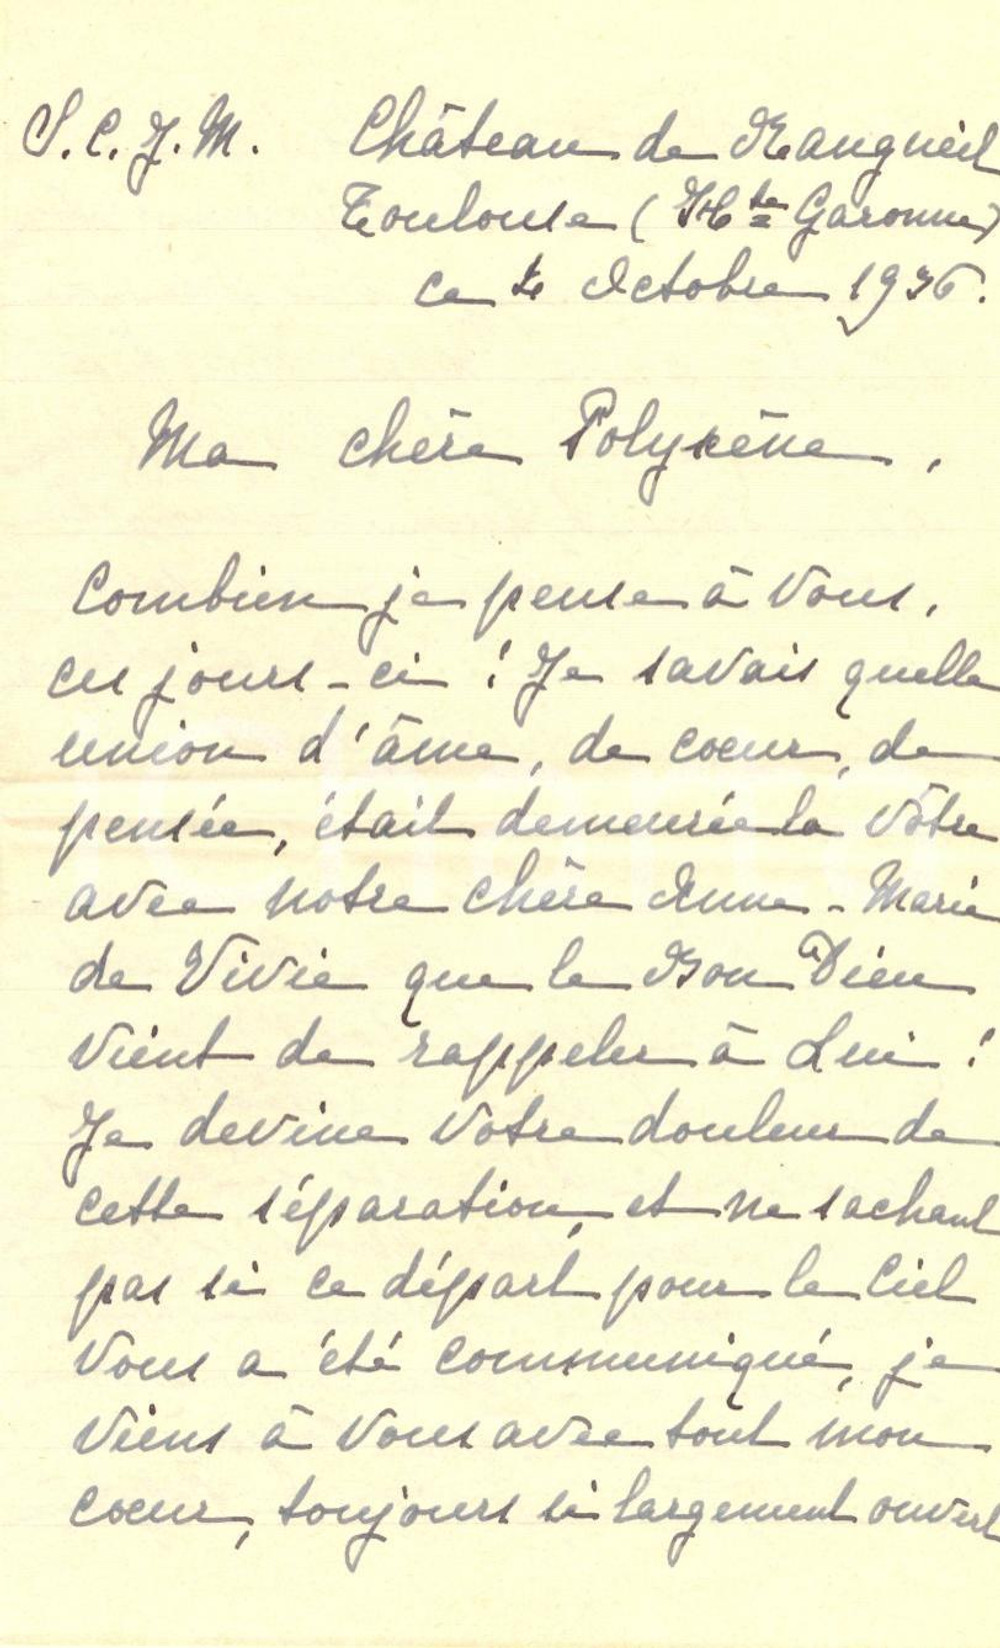 S.C.J.M. Château de Rangueil
Toulouse (Hte Garonne)
ce Octobre 1936.
Ma chère Polyxène,
Combien je pense à Vous,
ces jours-ci ! Je savais quelle
union d'âme, de coeur, de
pensée, était demeurée la Vôtre
avec notre chère Anne-Marie
de Vivie que le Bon Dieu
vient de rappeler à Lui !
Je devine Votre douleur de
cette séparation, et ne sachant
pas si ce départ pour le Ciel
Vous a été communiqué, je
viens à Vous avec tout mon
coeur, toujours si largement ouvert